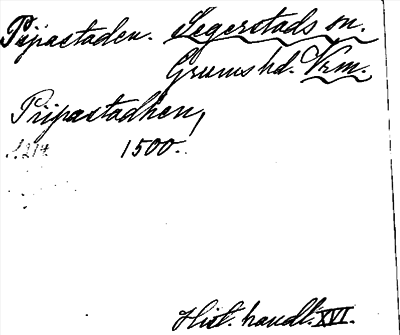 Pripastaden. Segerstads sn.
Grums hd. Vrm.
Pripastadhen,
s. 214. 1500.
Hist. handl. XVI.